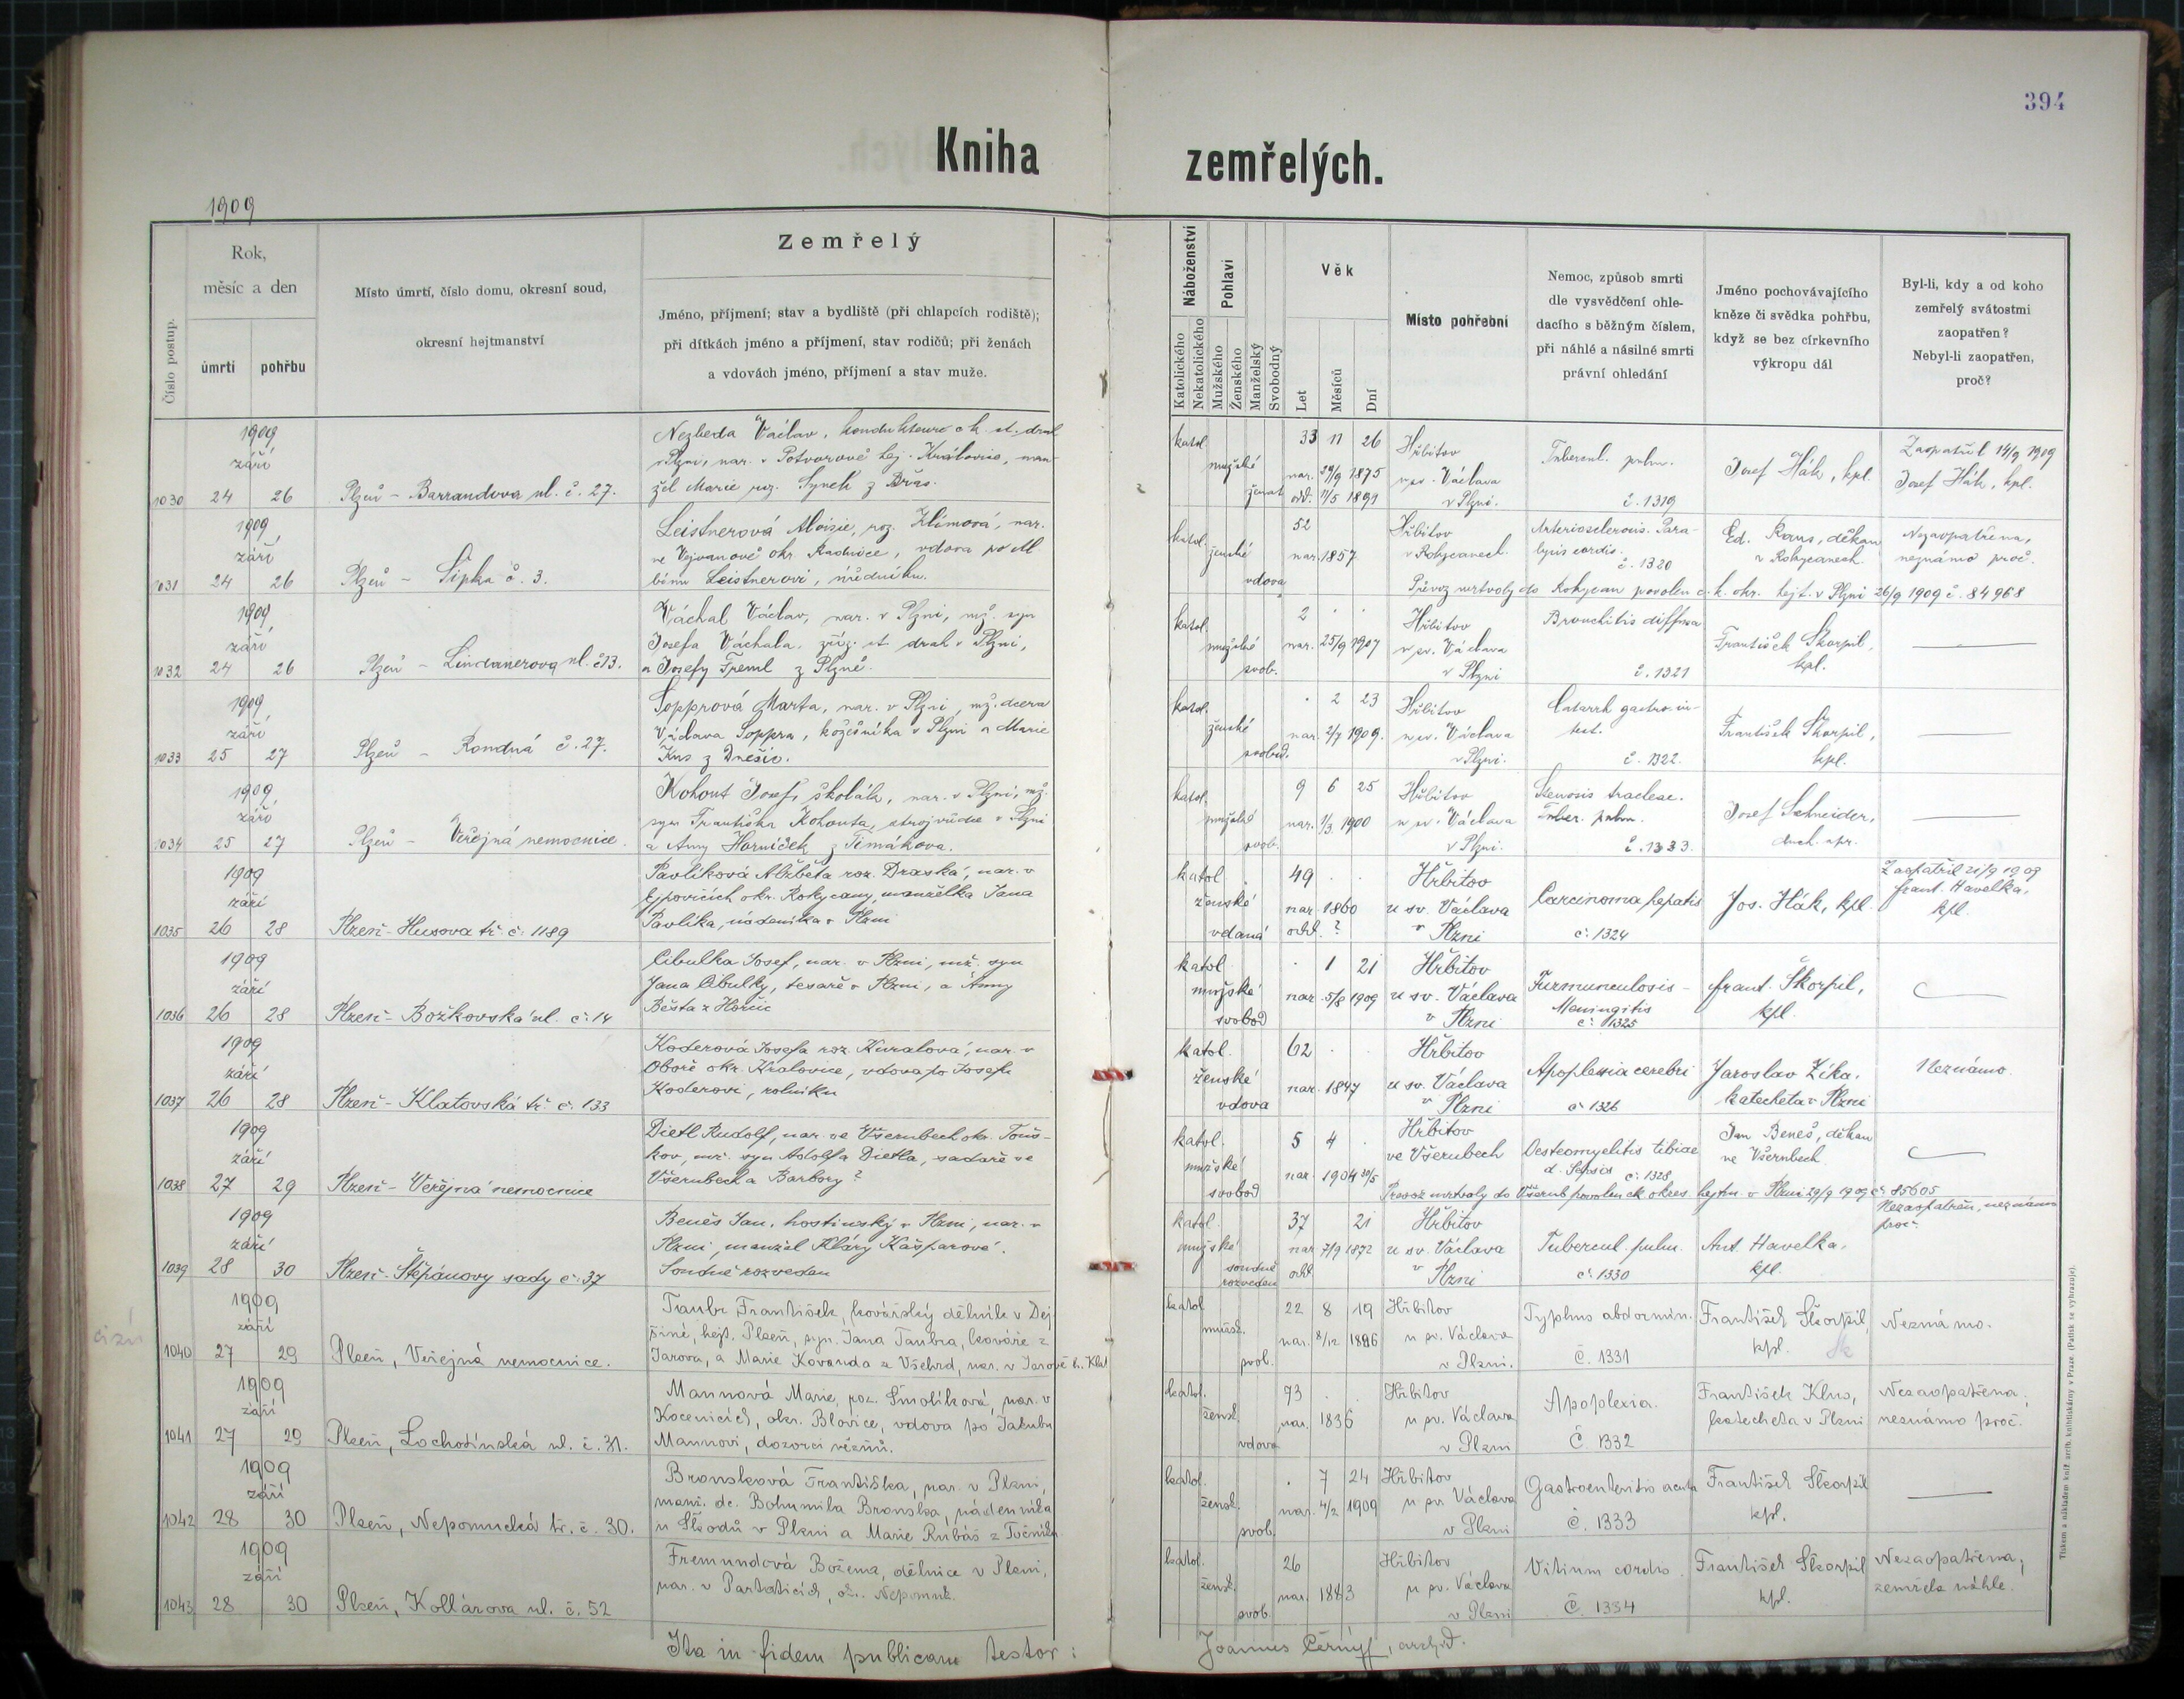 394
Kniha zemřelých.
1909
Číslo postup.
Rok,
měsíc a den
úmrtí
pohřbu
Místo úmrtí, číslo domu, okresní soud,
okresní hejtmanství
Zemřelý
Jméno, příjmení; stav a bydliště (při chlapcích rodiště);
při dítkách jméno a příjmení, stav rodičů; při ženách
a vdovách jméno, příjmení a stav muže.
Náboženství
Katolického
Nekatolického
Pohlaví
Mužského
Ženského
Manželský
Svobodný
Věk
Let
Měsíců
Dní
Místo pohřební
Nemoc, způsob smrti
dle vysvědčení ohle-
dacího s běžným číslem,
při náhlé a násilné smrti
právní ohledání
Jméno pochovávajícího
kněze či svědka pohřbu,
když se bez církevního
výkropu dál
Byl-li, kdy a od koho
zemřelý svátostmi
zaopatřen?
Nebyl-li zaopatřen,
proč?
1909
září
1030 24 26 Plzeň - Barrandova ul. č. 27.
Nezbeda Václav, kondukteur c. k. st. drah
v Plzni, nar. v Potvorově hej. Kralovic, man-
žel Marie roz. Synek z Břas.
katol. mužské ženat
33 11 26
nar. 29/9 1875
odd. 11/5 1899
Hřbitov
u sv. Václava
v Plzni.
Tubercul. pulm.
č. 1319
Josef Hák, kpl.
Zaopatřil 14/9 1909
Josef Hák, kpl.
1909
září
1031 24 26 Plzeň - Sipka č. 3.
Leistnerová Aloisie, roz. Klímová, nar.
ve Vejvanově okr. Radnice, vdova po Al-
bínu Leistnerovi, úředníku.
katol. ženské vdova
52
nar. 1857
Hřbitov
v Rokycanech.
Arteriosclerosis. Para-
lysis cordis.
č. 1320
Ed. Rans, děkan
v Rokycanech.
Nezaopatřena,
neznámo proč.
Převoz mrtvoly do Rokycan povolen c. k. okr. hejt. v Plzni 26/9 1909 č. 84968
1909
září
1032 24 26 Plzeň - Lindauerova ul. č 13.
Váchal Václav, nar. v Plzni, mž. syn
Josefa Váchala, zříz. st. drah v Plzni,
a Josefy Treml z Plzně.
katol. mužské svob.
2
nar. 25/9 1907
Hřbitov
u sv. Václava
v Plzni
Bronchitis diffusa
č. 1321
František Škorpil,
kpl.
1909
září
1033 25 27 Plzeň - Rondná č. 27.
Sopprová Marta, nar. v Plzni, mž. dcera
Václava Soppra, kožešníka v Plzni a Marie
Kus z Dnešic.
katol. ženské svobod.
2 23
nar. 2/7 1909.
Hřbitov
u sv. Václava
v Plzni.
Catarrh gastro. in-
test.
č. 1322.
František Škorpil,
kpl.
1909
září
1034 25 27 Plzeň - Veřejná nemocnice.
Kohout Josef, školák, nar. v Plzni, mž.
syn Františka Kohouta, strojvůdce v Plzni
a Anny Horníček z Timákova.
katol. mužské svob.
9 6 25
nar. 1/3 1900
Hřbitov
u sv. Václava
v Plzni.
Stenosis tracheae.
Tuber. pulm.
č. 1333.
Josef Schneider,
duch. spr.
1909
září
1035 26 28 Plzeň - Husova tř. č. 1189
Pavlíková Alžběta roz. Draská, nar. v
Ejpovicích okr. Rokycany, manželka Jana
Pavlíka, nádeníka v Plzni
katol ženské vdaná
49
nar. 1860
odd. ?
Hřbitov
u sv. Václava
v Plzni
Carcinoma hepatis
č. 1324
Jos. Hák, kpl.
Zaopatřil 21/9 1909
Frant. Havelka,
kpl.
1909
září
1036 26 28 Plzeň - Božkovská ul. č. 14
Cibulka Josef, nar. v Plzni, mž. syn
Jana Cibulky, tesaře v Plzni, a Anny
Běsta z Hořic
katol mužské svobod
1 21
nar. 5/8 1909
Hřbitov
u sv. Václava
v Plzni
Furmunculosis -
Meningitis
č. 1325
Frant. Škorpil,
kpl.
1909
září
1037 26 28 Plzeň - Klatovská tř. č. 133
Koderová Josefa roz. Kuralová, nar. v
Oboře okr. Kralovice, vdova po Josefu
Koderovi, rolníku
katol. ženské vdova
62
nar. 1847
Hřbitov
u sv. Václava
v Plzni
Apoplexia cerebri
č. 1326
Jaroslav Zíka,
katecheta v Plzni
Neznámo.
1909
září
1038 27 29 Plzeň - Veřejná nemocnice
Dietl Rudolf, nar. ve Všerubech okr. Touš-
kov, mž. syn Adolfa Dietla, sadaře ve
Všerubech a Barbory ?
katol. mužské svobod
5 4
nar. 1904 30/5
Hřbitov
ve Všerubech
Oesteomyelitis tibiae
d. Sepsis č. 1328
Jan Beneš, děkan
ve Všerubech
Převoz mrtvoly do Všerub povolen ck okres. hejtm. v Plzni 29/9 1909 č. 85605
1909
září
1039 28 30 Plzeň - Štěpánovy sady č. 37
Beneš Jan, hostinský v Plzni, nar. v
Plzni, manžel Kláry Kašparové.
Soudně rozveden
katol. mužské soudně rozveden
37 21
nar 7/9 1872
odd
Hřbitov
u sv. Václava
v Plzni
Tubercul. pulm.
č. 1330
Ant. Havelka,
kpl.
Nezaopatřen, neznámo
proč.
1909
září
1040 27 29 Plzeň, Veřejná nemocnice.
Taubr František, kovářský dělník v Dej-
šině, hejt. Plzeň, syn Jana Taubra, kováře z
Jarova, a Marie Kovanda z Všehrd, nar. v Jarově h. Klal
katol mužsk. svob.
22 8 19
nar. 8/12 1886
Hřbitov
u sv. Václava
v Plzni.
Typhus abdormin.
č. 1331
František Škorpil,
kpl.
Neznámo.
1909
září
1041 27 29 Plzeň, Lochotínská ul. č. 31.
Mannová Marie, roz. Smolíková, nar. v
Kocenicích, okr. Blovice, vdova po Jakubu
Mannovi, dozorci vězňů.
katol. žensk. vdova
73
nar. 1836
Hřbitov
u sv. Václava
v Plzni
Apoplexia.
Č. 1332
František Klus,
katecheta v Plzni
Nezaopatřena;
neznámo proč.
1909
září
1042 28 30 Plzeň, Nepomucká tř. č. 30.
Bronsková Františka, nar. v Plzni,
manž. dc. Bohumila Bronska, nádenníka
u Škodů v Plzni a Marie Rubáš z Točníka
katol. žensk. svob.
7 24
nar. 4/2 1909
Hřbitov
u sv. Václava
v Plzni
Gastroenteritis acuta
č. 1333
František Škorpil
kpl.
1909
září
1043 28 30 Plzeň, Kollárova ul. č. 52
Fremundová Božena, dělnice v Plzni,
nar. v Partoticích, ok. Nepomuk.
katol. žensk. svob.
26
nar. 1883
Hřbitov
u sv. Václava
v Plzni
Vitium cordis.
Č. 1334
František Škorpil
kpl.
Nezaopatřena;
zemřela náhle.
Ita in fidem publicam testor: Joannes Černý, archid.
Tiskem a nákladem kníž. arcib. knihtiskárny v Praze. (Patisk se vyhrazuje).